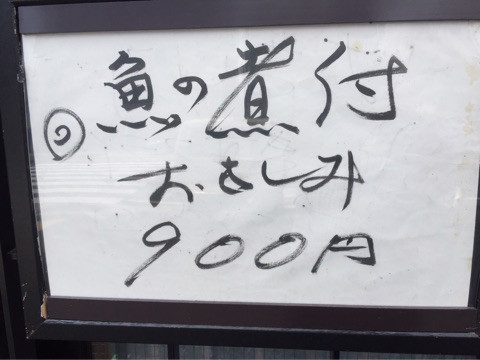 魚の煮付
おさしみ
900円